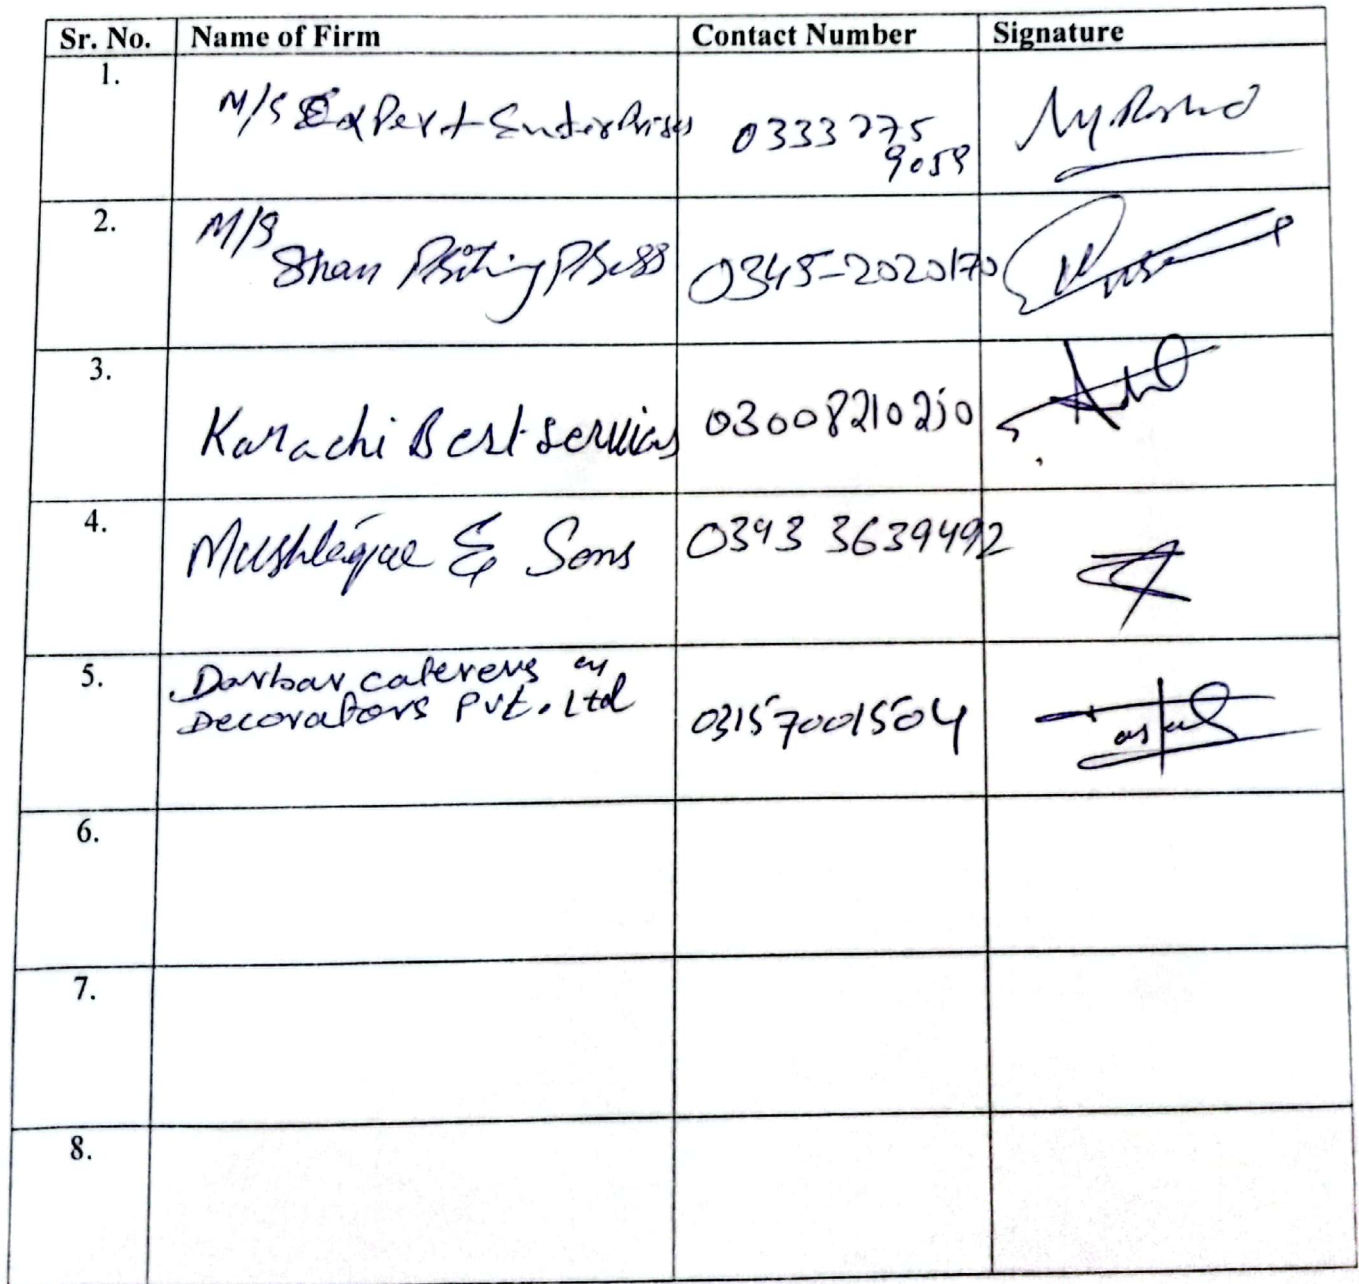 Sr. No. Name of Firm Contact Number Signature
1. M/S Expert Enterprises 0333 775
9059
2. M/S
Shan Priting Press 0345-2020170
3. Karachi Best services 03008210250
4. Mushtaque & Sons 0343 3639492
5. Darbar caterers
Decorators Pvt. Ltd 03157001504
6.
7.
8.